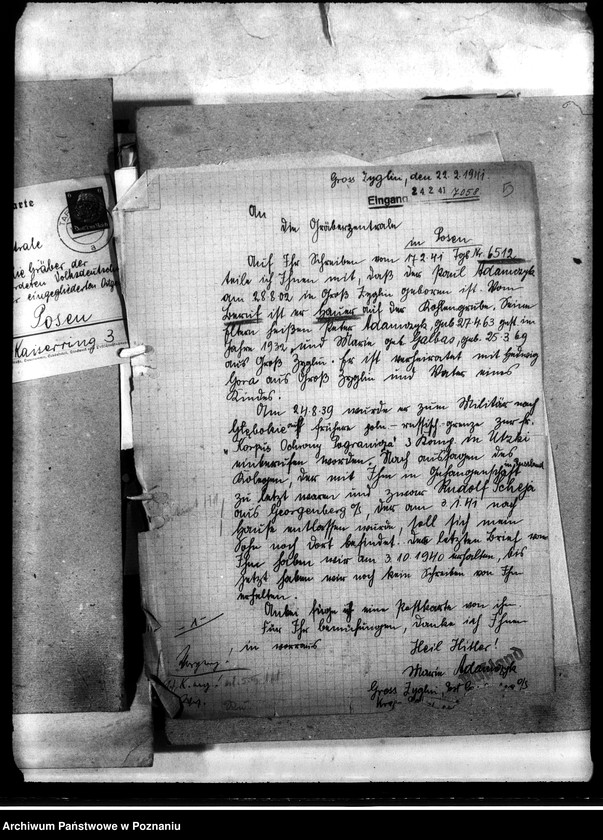 arte
trale
ie Gräber der
rdeten Volksdeutsch
r eingegliederten Ost
Posen
Kaiserring 3
Gross Zyglin, den 22.2.1941.
Eingang 24.2.41 7058
5
An
die Gräberzentrale
in Posen
Auf Ihr Schreiben vom 17.2.41 Tgb Nr. 6512
teile ich Ihnen mit, daß der Paul Adamczyk
am 28.8.02 in Groß Zyglin geboren ist. Vom
Beruf ist er Hauer auf der Kohlengrube. Seine
Eltern heißen Peter Adamczyk, geb. 27.4.63 gest. im
Jahre 1932, und Marie geb. Galbas, geb. 25.3.69
aus Groß Zyglin. Er ist verheiratet mit Hedwig
Gora aus Groß Zyglin und Vater eines
Kindes.
Am 24.8.39 wurde er zum Militär nach
frühere poln-russisch-grenze zur
"Korpus Ochrony Pogranicza" 3 Komp. in Utzki
einberufen worden. Nach aussagen des
Kolegen, der mit Ihm in Gefangenschaft
zu letzt waren und zwar Rudolf Scheja
aus Georgenberg O/S, der am 3.1.41 nach
hause entlassen wurde, soll sich mein
Sohn noch dort befindet. Den letzten Brief von
Ihm haben wir am 3.10.1940 erhalten, bis
jetzt haben wir noch kein Schreiben von Ihm
erhalten.
Anbei füge ich eine Postkarte von ihm.
Für Ihr bemühungen, danke ich Ihnen
in vorraus
Heil Hitler!
Marie Adamczyk
Gross Zyglin,
Vorgang
Archiwum Państwowe w Poznaniu